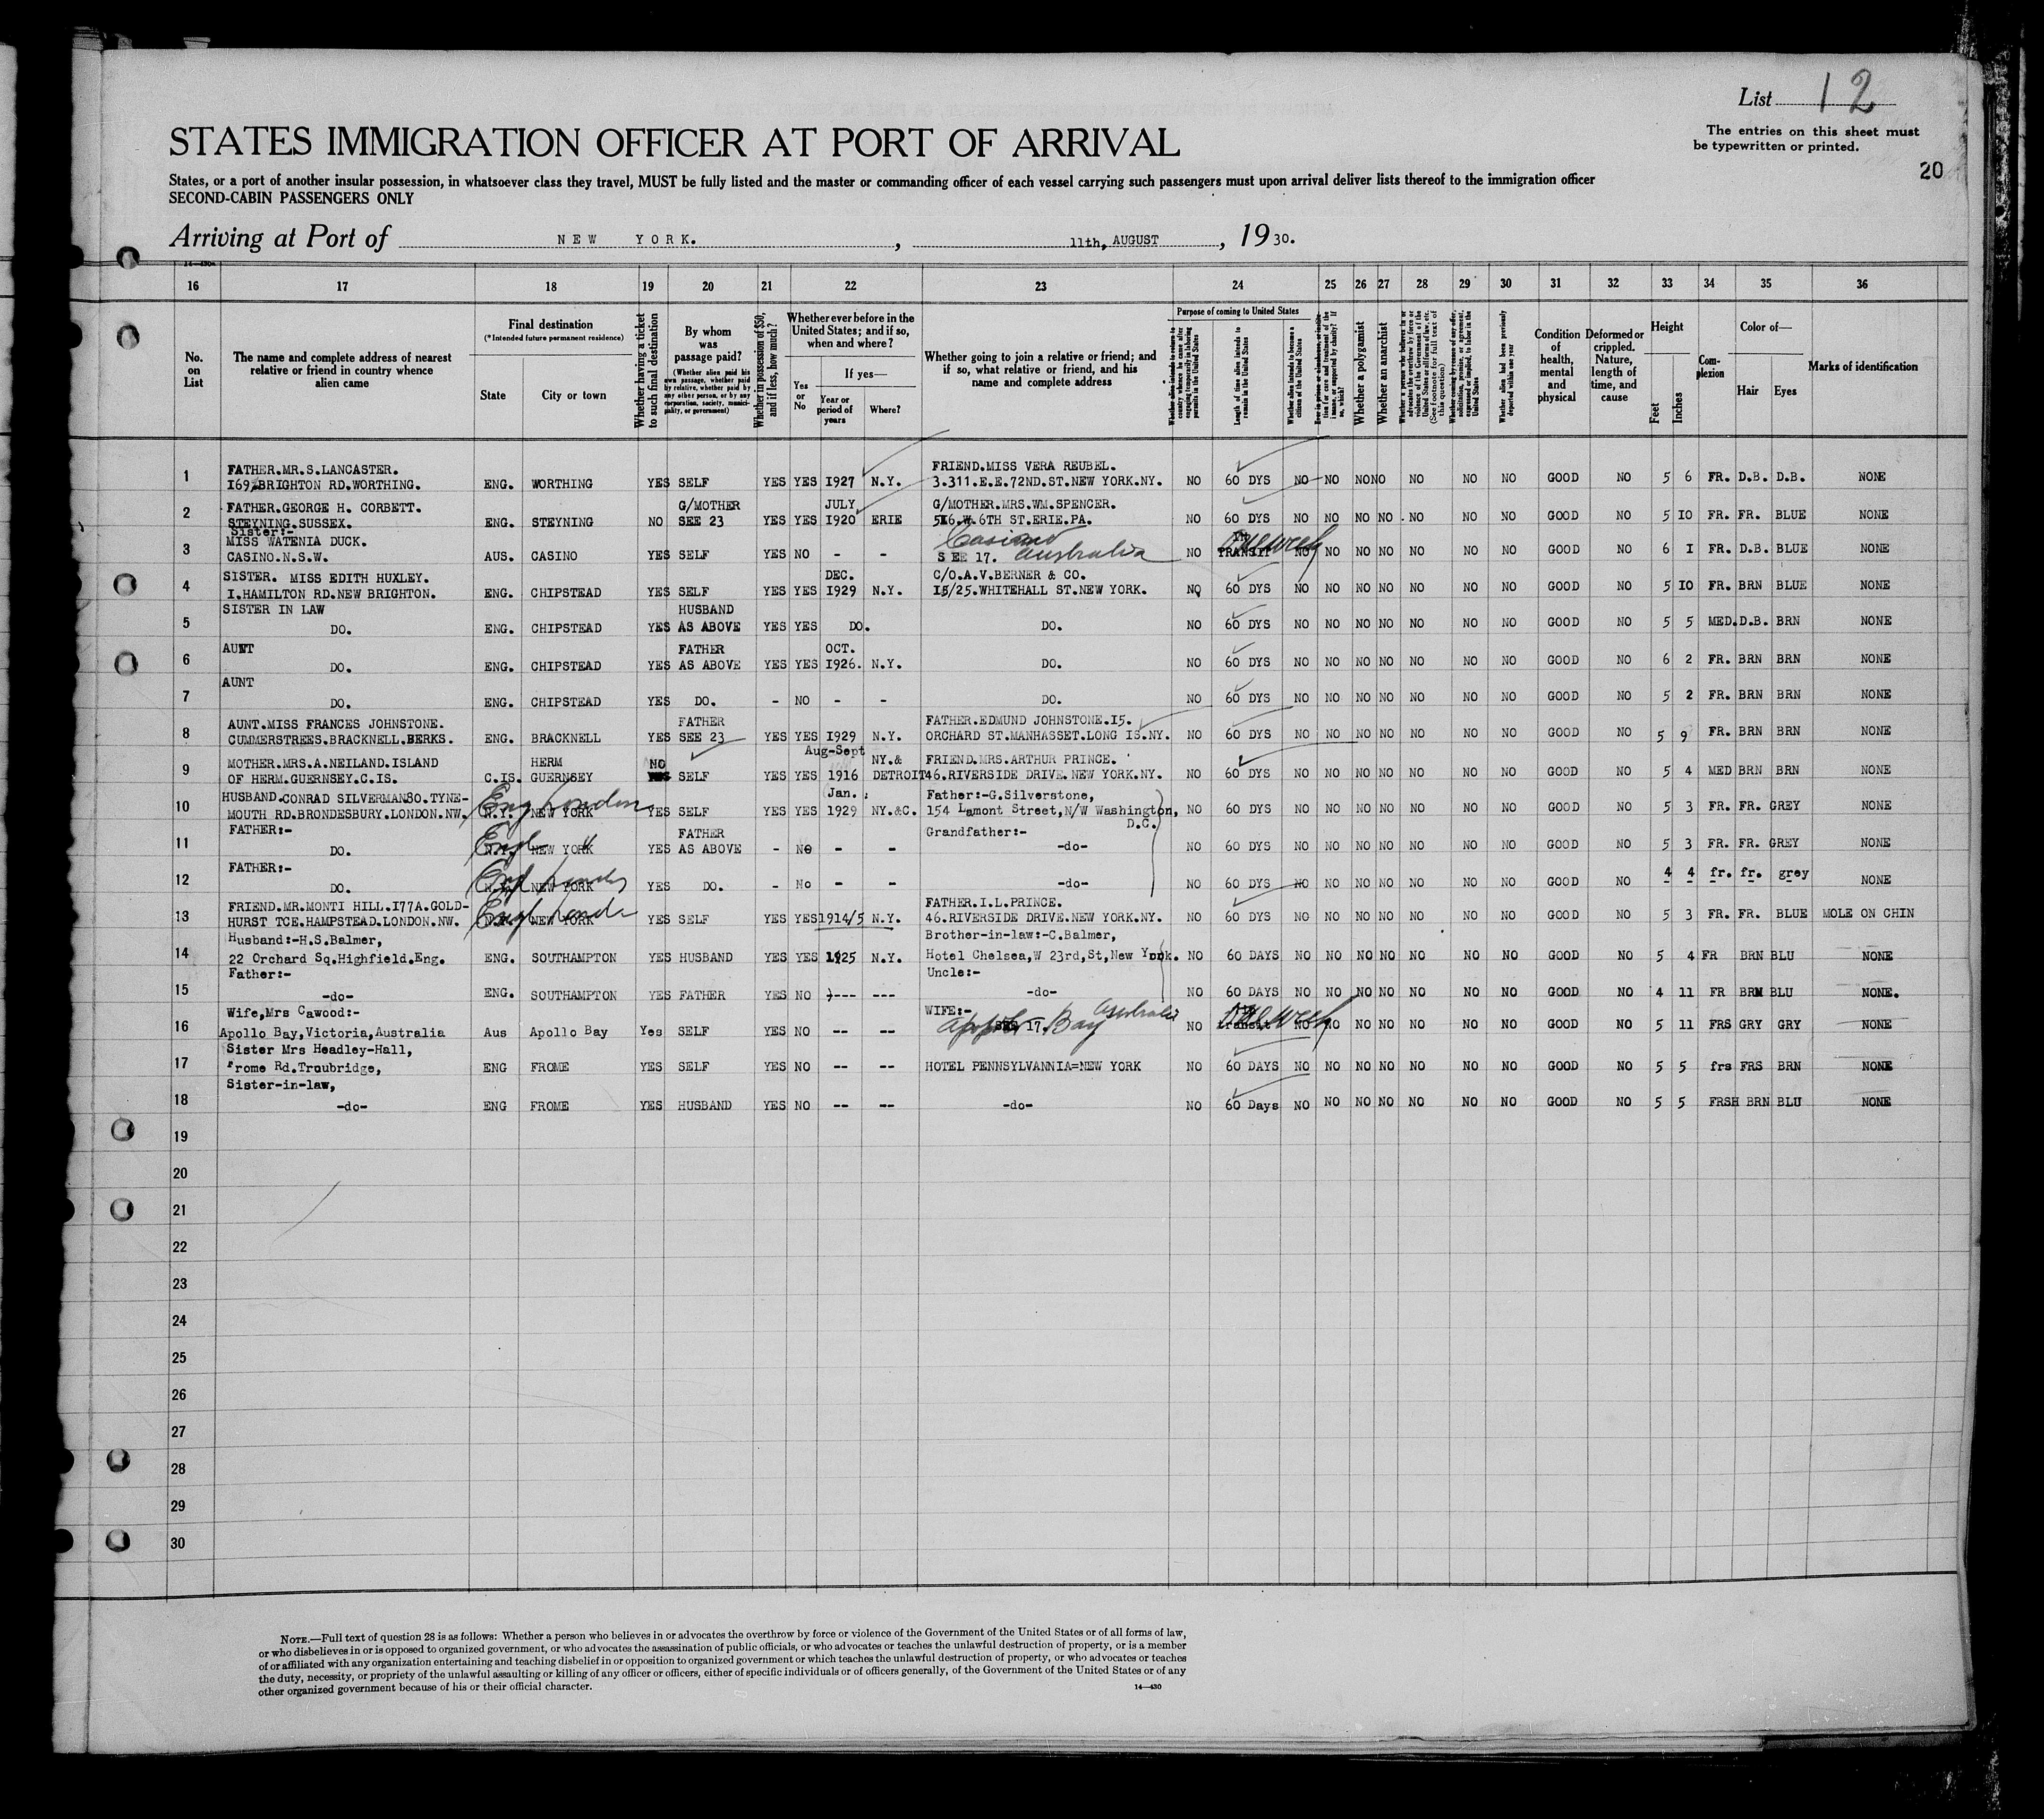 List 12
The entries on this sheet must
be typewritten or printed.
20
STATES IMMIGRATION OFFICER AT PORT OF ARRIVAL
States, or a port of another insular possession, in whatsoever class they travel, MUST be fully listed and the master or commanding officer of each vessel carrying such passengers must upon arrival deliver lists thereof to the immigration officer
SECOND-CABIN PASSENGERS ONLY
Arriving at Port of NEW YORK. , 11th, AUGUST , 1930.
14—430
16 17 18 19 20 21 22 23 24 25 26 27 28 29 30 31 32 33 34 35 36
No. on List
The name and complete address of nearest relative or friend in country whence alien came
Final destination
(*Intended future permanent residence)
State
City or town
Whether having a ticket to such final destination
By whom was passage paid?
(Whether alien paid his own passage, whether paid by relative, whether paid by any other person, or by any corporation, society, municipality, or government)
Whether in possession of $50, and if less, how much?
Whether ever before in the United States; and if so, when and where?
Yes or No
If yes—
Year or period of years
Where?
Whether going to join a relative or friend; and if so, what relative or friend, and his name and complete address
Purpose of coming to United States
Length of time alien intends to remain in the United States
Whether alien intends to become a citizen of the United States
Whether a polygamist
Whether an anarchist
Whether alien had been previously deported within one year
Condition of health, mental and physical
Deformed or crippled. Nature, length of time, and cause
Height
Feet
Inches
Complexion
Color of—
Hair
Eyes
Marks of identification
1 FATHER.MR.S.LANCASTER. FRIEND.MISS VERA REUBEL.
169,BRIGHTON RD.WORTHING. ENG. WORTHING YES SELF YES YES 1927 N.Y. 3.311.E.E.72ND.ST.NEW YORK.NY. NO 60 DYS NO NO NO NO NO NO NO GOOD NO 5 6 FR. D.B. D.B. NONE
2 FATHER.GEORGE H. CORBETT. G/MOTHER JULY G/MOTHER.MRS.WM.SPENCER.
STEYNING.SUSSEX. ENG. STEYNING NO SEE 23 YES YES 1920 ERIE 516.W.6TH ST.ERIE.PA. NO 60 DYS NO NO NO NO NO NO NO GOOD NO 5 10 FR. FR. BLUE NONE
Sister:-
3 MISS WATENIA DUCK. Casino
CASINO.N.S.W. AUS. CASINO YES SELF YES NO - - SEE 17. Australia NO IN TRANSIT One week NO NO NO NO NO NO NO GOOD NO 6 1 FR. D.B. BLUE NONE
4 SISTER. MISS EDITH HUXLEY. DEC. C/O.A.V.BERNER & CO.
1.HAMILTON RD.NEW BRIGHTON. ENG. CHIPSTEAD YES SELF YES YES 1929 N.Y. 15/25.WHITEHALL ST.NEW YORK. NO 60 DYS NO NO NO NO NO NO NO GOOD NO 5 10 FR. BRN BLUE NONE
5 SISTER IN LAW HUSBAND
DO. ENG. CHIPSTEAD YES AS ABOVE YES YES DO. DO. NO 60 DYS NO NO NO NO NO NO NO GOOD NO 5 5 MED. D.B. BRN NONE
6 AUNT FATHER OCT.
DO. ENG. CHIPSTEAD YES AS ABOVE YES YES 1926. N.Y. DO. NO 60 DYS NO NO NO NO NO NO NO GOOD NO 6 2 FR. BRN BRN NONE
7 AUNT
DO. ENG. CHIPSTEAD YES DO. - NO - - DO. NO 60 DYS NO NO NO NO NO NO NO GOOD NO 5 2 FR. BRN BRN NONE
8 AUNT.MISS FRANCES JOHNSTONE. FATHER FATHER.EDMUND JOHNSTONE.15.
CUMMERSTREES.BRACKNELL.BERKS. ENG. BRACKNELL YES SEE 23 YES YES 1929 N.Y. ORCHARD ST.MANHASSET.LONG IS.NY. NO 60 DYS NO NO NO NO NO NO NO GOOD NO 5 9 FR. BRN BRN NONE
Aug-Sept
9 MOTHER.MRS.A.NEILAND.ISLAND HERM NO NY.& FRIEND.MRS.ARTHUR PRINCE.
OF HERM.GUERNSEY.C.IS. C.IS. GUERNSEY YES SELF YES YES 1916 DETROIT 46.RIVERSIDE DRIVE.NEW YORK.NY. NO 60 DYS NO NO NO NO NO NO NO GOOD NO 5 4 MED BRN BRN NONE
10 HUSBAND.CONRAD SILVERMAN30.TYNE- Eng London Jan. Father:-G.Silverstone,
MOUTH RD.BRONDESBURY.LONDON.NW. N.Y. NEW YORK YES SELF YES YES 1929 NY.&C. 154 Lamont Street,N/W Washington, D.C. NO 60 DYS NO NO NO NO NO NO NO GOOD NO 5 3 FR. FR. GREY NONE
11 FATHER:- Engl " FATHER Grandfather:-
DO. N.Y. NEW YORK YES AS ABOVE - No - - -do- NO 60 DYS NO NO NO NO NO NO NO GOOD NO 5 3 FR. FR. GREY NONE
12 FATHER:- Engl London
DO. N.Y. NEW YORK YES DO. - No - - -do- NO 60 DYS NO NO NO NO NO NO NO GOOD NO 4 4 fr. fr. grey NONE
13 FRIEND.MR.MONTI HILL.177A.GOLD- Engl London FATHER.I.L.PRINCE.
HURST TCE.HAMPSTEAD.LONDON.NW. N.Y. NEW YORK YES SELF YES YES 1914/5 N.Y. 46.RIVERSIDE DRIVE.NEW YORK.NY. NO 60 DYS NO NO NO NO NO NO NO GOOD NO 5 3 FR. FR. BLUE MOLE ON CHIN
14 Husband:-H.S.Balmer, Brother-in-law:-C.Balmer,
22 Orchard Sq.Highfield.Eng. ENG. SOUTHAMPTON YES HUSBAND YES YES 1925 N.Y. Hotel Chelsea,W 23rd,St,New York. NO 60 DAYS NO NO NO NO NO NO NO GOOD NO 5 4 FR BRN BLU NONE
15 Father:- Uncle:-
-do- ENG. SOUTHAMPTON YES FATHER YES NO --- --- -do- NO 60 DAYS NO NO NO NO NO NO NO GOOD NO 4 11 FR BRN BLU NONE.
16 Wife,Mrs Cawood:- WIFE:- Australia
Apollo Bay,Victoria,Australia Aus Apollo Bay Yes SELF YES NO -- -- SEE 17. Apollo Bay NO transit One week NO NO NO NO NO NO NO GOOD NO 5 11 FRS GRY GRY NONE
17 Sister Mrs Headley-Hall,
Frome Rd.Troubridge, ENG FROME YES SELF YES NO -- -- HOTEL PENNSYLVANNIA=NEW YORK NO 60 DAYS NO NO NO NO NO NO NO GOOD NO 5 5 frs FRS BRN NONE
18 Sister-in-law,
-do- ENG FROME YES HUSBAND YES NO -- -- -do- NO 60 Days NO NO NO NO NO NO NO GOOD NO 5 5 FRSH BRN BLU NONE
19
20
21
22
23
24
25
26
27
28
29
30
NOTE.—Full text of question 28 is as follows: Whether a person who believes in or advocates the overthrow by force or violence of the Government of the United States or of all forms of law,
or who disbelieves in or is opposed to organized government, or who advocates the assassination of public officials, or who advocates or teaches the unlawful destruction of property, or is a member
of or affiliated with any organization entertaining and teaching disbelief in or opposition to organized government or which teaches the unlawful destruction of property, or who advocates or teaches
the duty, necessity, or propriety of the unlawful assaulting or killing of any officer or officers, either of specific individuals or of officers generally, of the Government of the United States or of any
other organized government because of his or their official character.
14—430